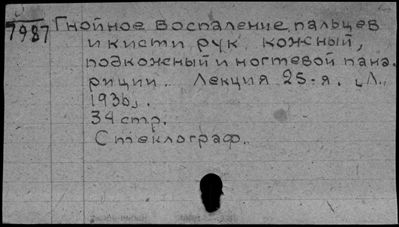 7987 Гнойное воспаление пальцев
и кисти рук кожный,
подкожный и ногтевой пана
риции. Лекция 25-я. Л.,
1936.
34 стр.
Стеклограф.